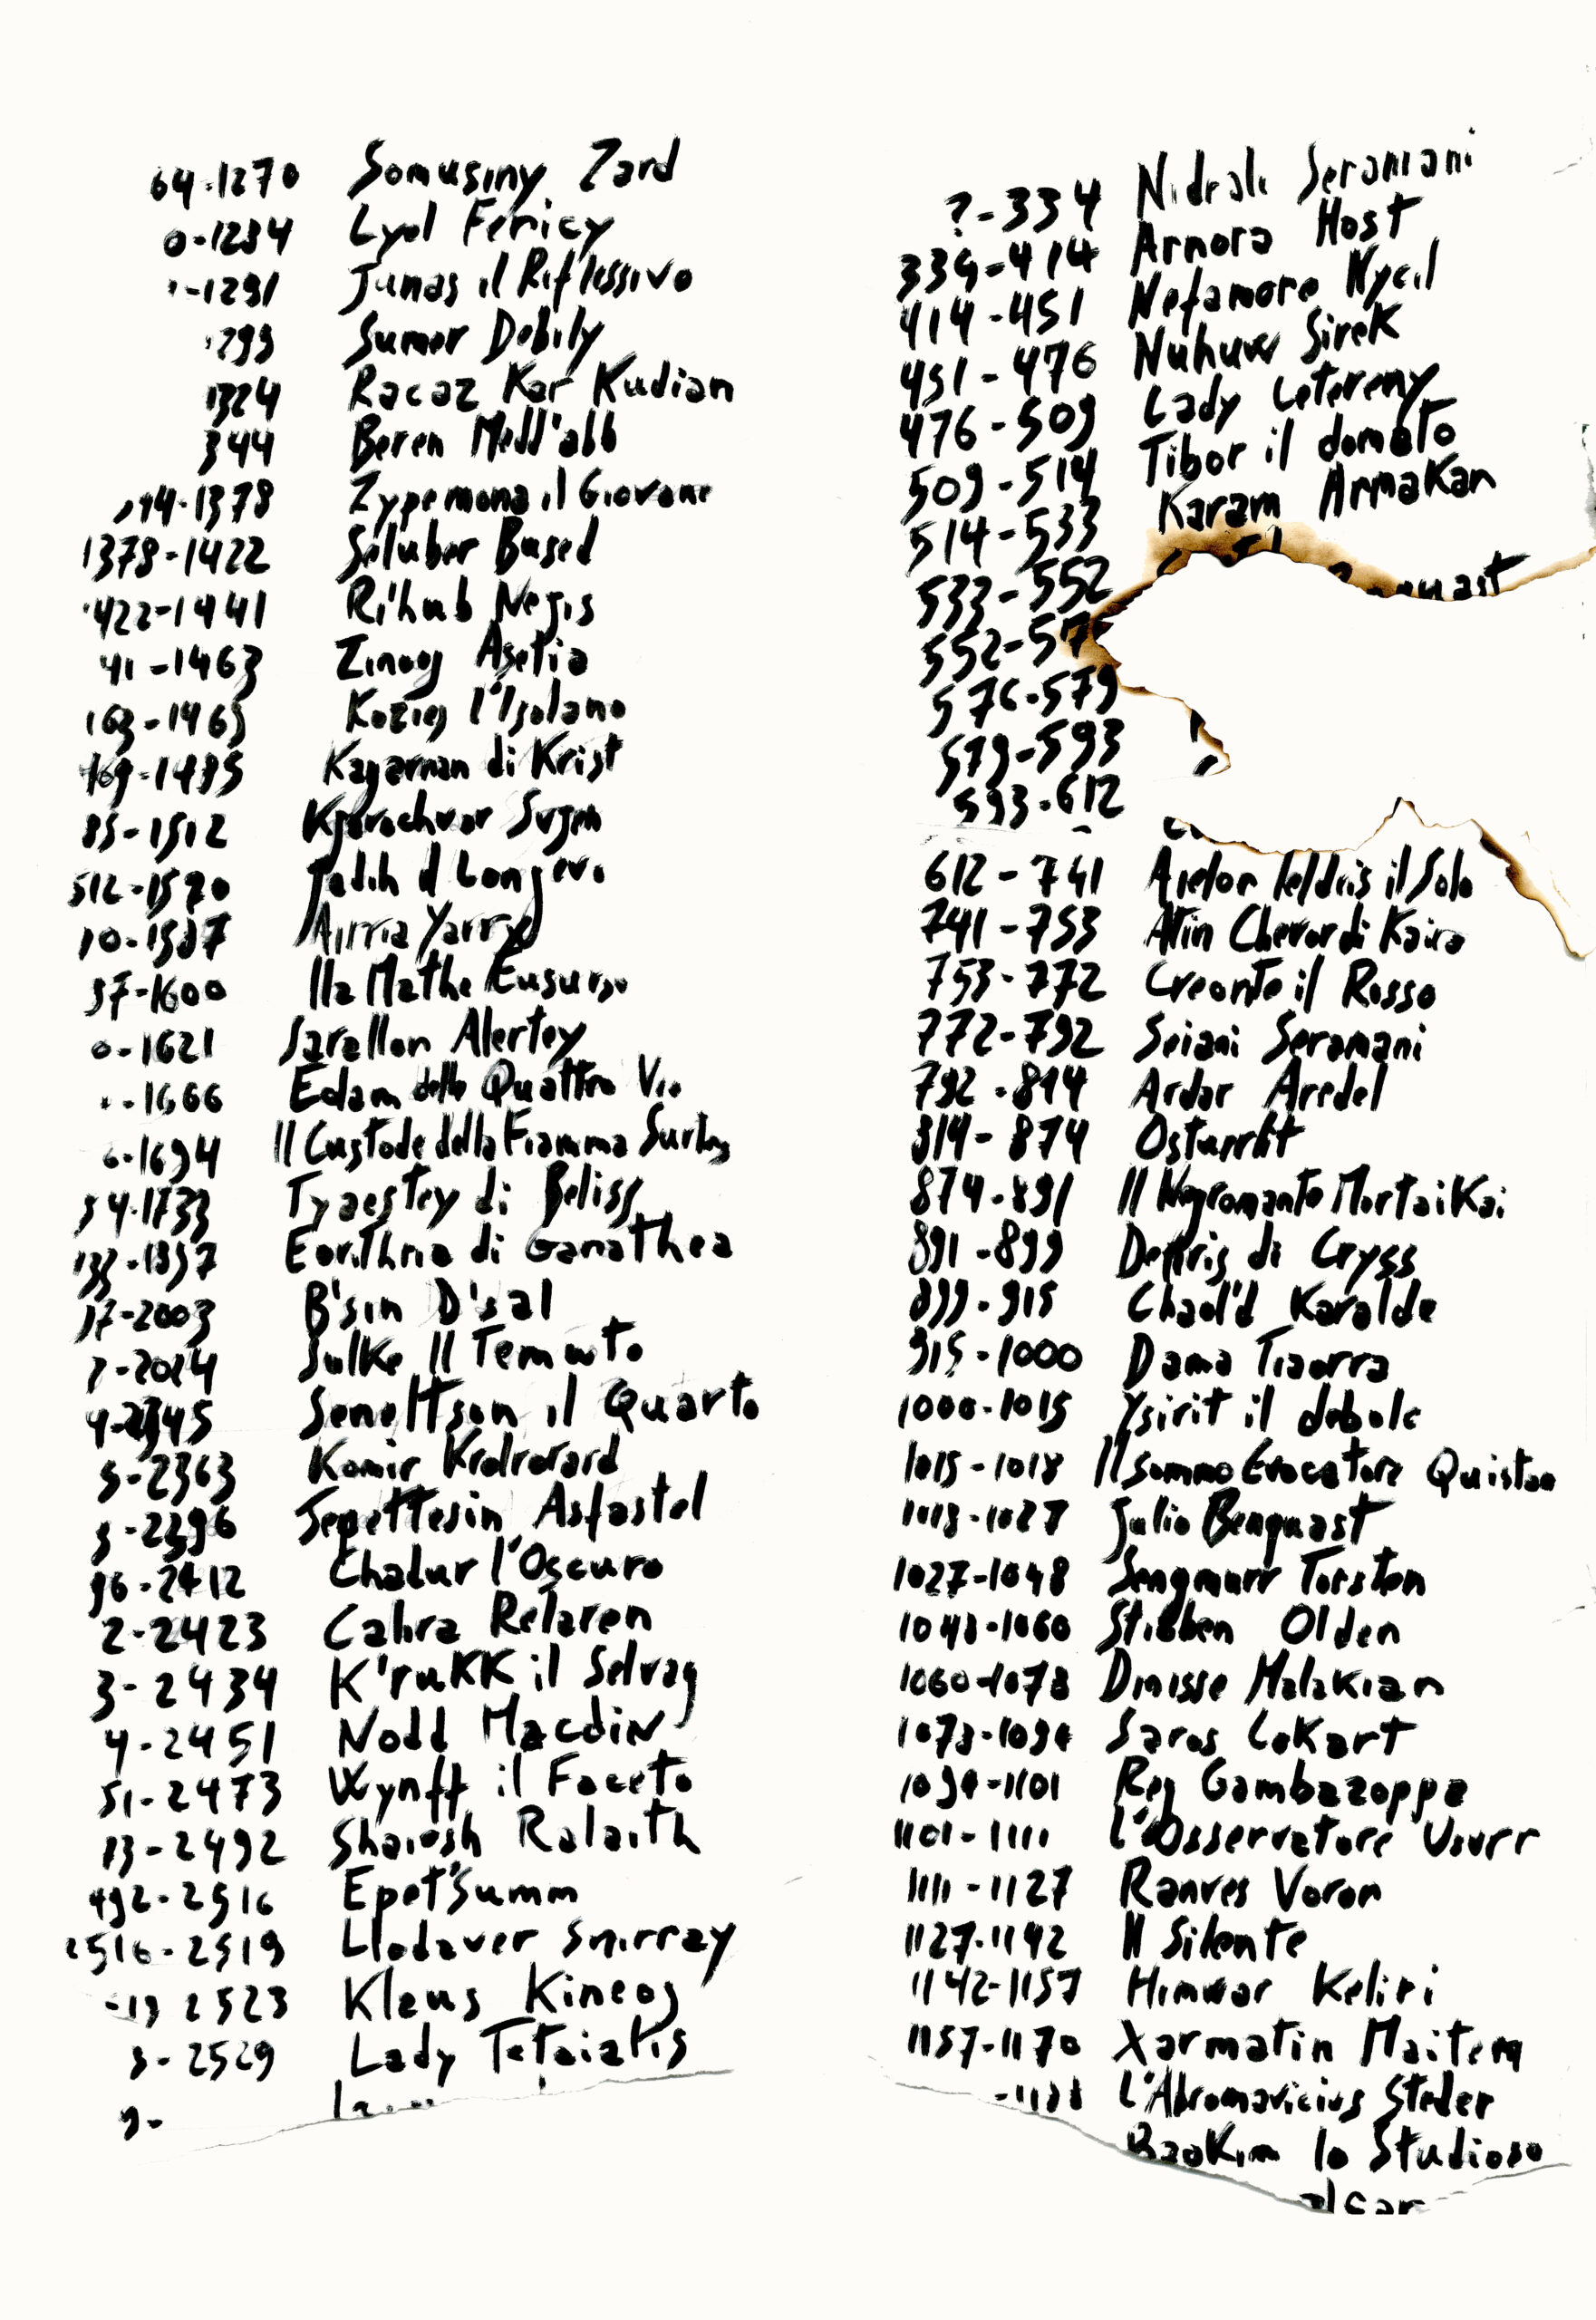 64-1270 Somusiny Zard
0-1284 Lyol Fericy
-1291 Junas il Riflessivo
1299 Sumer Debily
1324 Racaz Kar Kudian
344 Beren Medd'abb
1378 Zypemona il Giovane
1378-1422 Seluber Based
422-1441 Ri'hub Negis
41-1463 Asetia
163-1469 Kozieg l'Isolano
469-1485 Kagarnan di Krist
85-1512
512-1570 Jadih il Longevo
-1587 Yarry
87-1600 Ila Mathe
0-1621 Sarallon Alertey
-1666 Edam delle Quattro Vie
6-1694 Il Custode della Fiamma
94-1733 Tyaestey di Beliss
733-1897 Eorithria di Ganathea
97-2003 B'sin D'sal
Sulke Il Temuto
Senoltson il Quarto
5-2363 Komir
3-2396 Jepettesin Asfastel
96-2412 Chadur l'Oscuro
2-2423 Cahra Relaren
3-2434 K'ruKK il Selvag
4-2451 Nodd Macdin
51-2473 Wynft il Faceto
73-2492 Shaiosh Ralaith
492-2516 Epet'Summ
2516-2519 Llodaver Snirray
-19 2523 Klaus Kineog
3-2529 Lady Tetaiatis
9-
?-334 Seramani
334-414 Arnora Host
414-451 Nefamore Nycil
451-476 Sirek
476-509 Lady Letereny
509-514 Tibor il domato
514-533 Karam Armakan
533-552
552-57
576-579
579-593
593-612
612-741 il Solo
741-753 Kaira
753-772 Creonte il Rosso
772-792 Seiani Seramani
792-814 Ardar Aredel
814-874
874-891 Il Negromante Mortaikai
891-899 di Cryss
899-915 Chaol'd Karalde
915-1000 Dama Tiaorra
1000-1015 Ysirit il debole
1015-1018 Il sommo Evocatore Quiston
1018-1027 Julio Benquast
1027-1048 Sengmurr Torsten
1048-1060 Stibben Olden
1060-1078 Dinisse Malakian
1078-1094 Saros Lokart
1094-1101 Reg Gambazoppa
1101-1111 L'Osservatore Usurr
1111-1127 Ranves Voron
1127-1142 Il Silente
1142-1157 Himwar Keliri
1157-1170 Xarmatin Maitem
L'Abromavicius Steder
Baokim lo Studioso